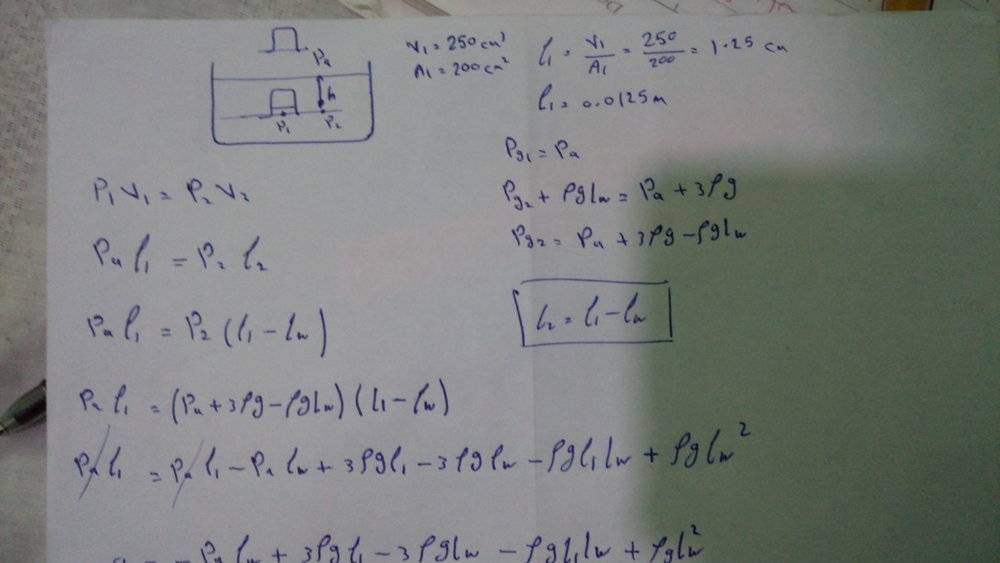 Pa
h
P₁ P₂
V₁ = 250 cm³
A₁ = 200 cm²
l₁ = V₁/A₁ = 250/200 = 1.25 cm
l₁ = 0.0125 m
Pg₁ = Pa
Pg₂ + ρglw = Pa + 3ρg
Pg₂ = Pa + 3ρg - ρglw
l₂ = l₁ - lw
P₁ V₁ = P₂ V₂
Pa l₁ = P₂ l₂
Pa l₁ = P₂ (l₁ - lw)
Pa l₁ = (Pa + 3ρg - ρglw) (l₁ - lw)
Pa l₁ = Pa l₁ - Pa lw + 3ρgl₁ - 3ρglw - ρgl₁lw + ρglw²
= - Pa lw + 3ρgl₁ - 3ρglw - ρgl₁lw + ρglw²